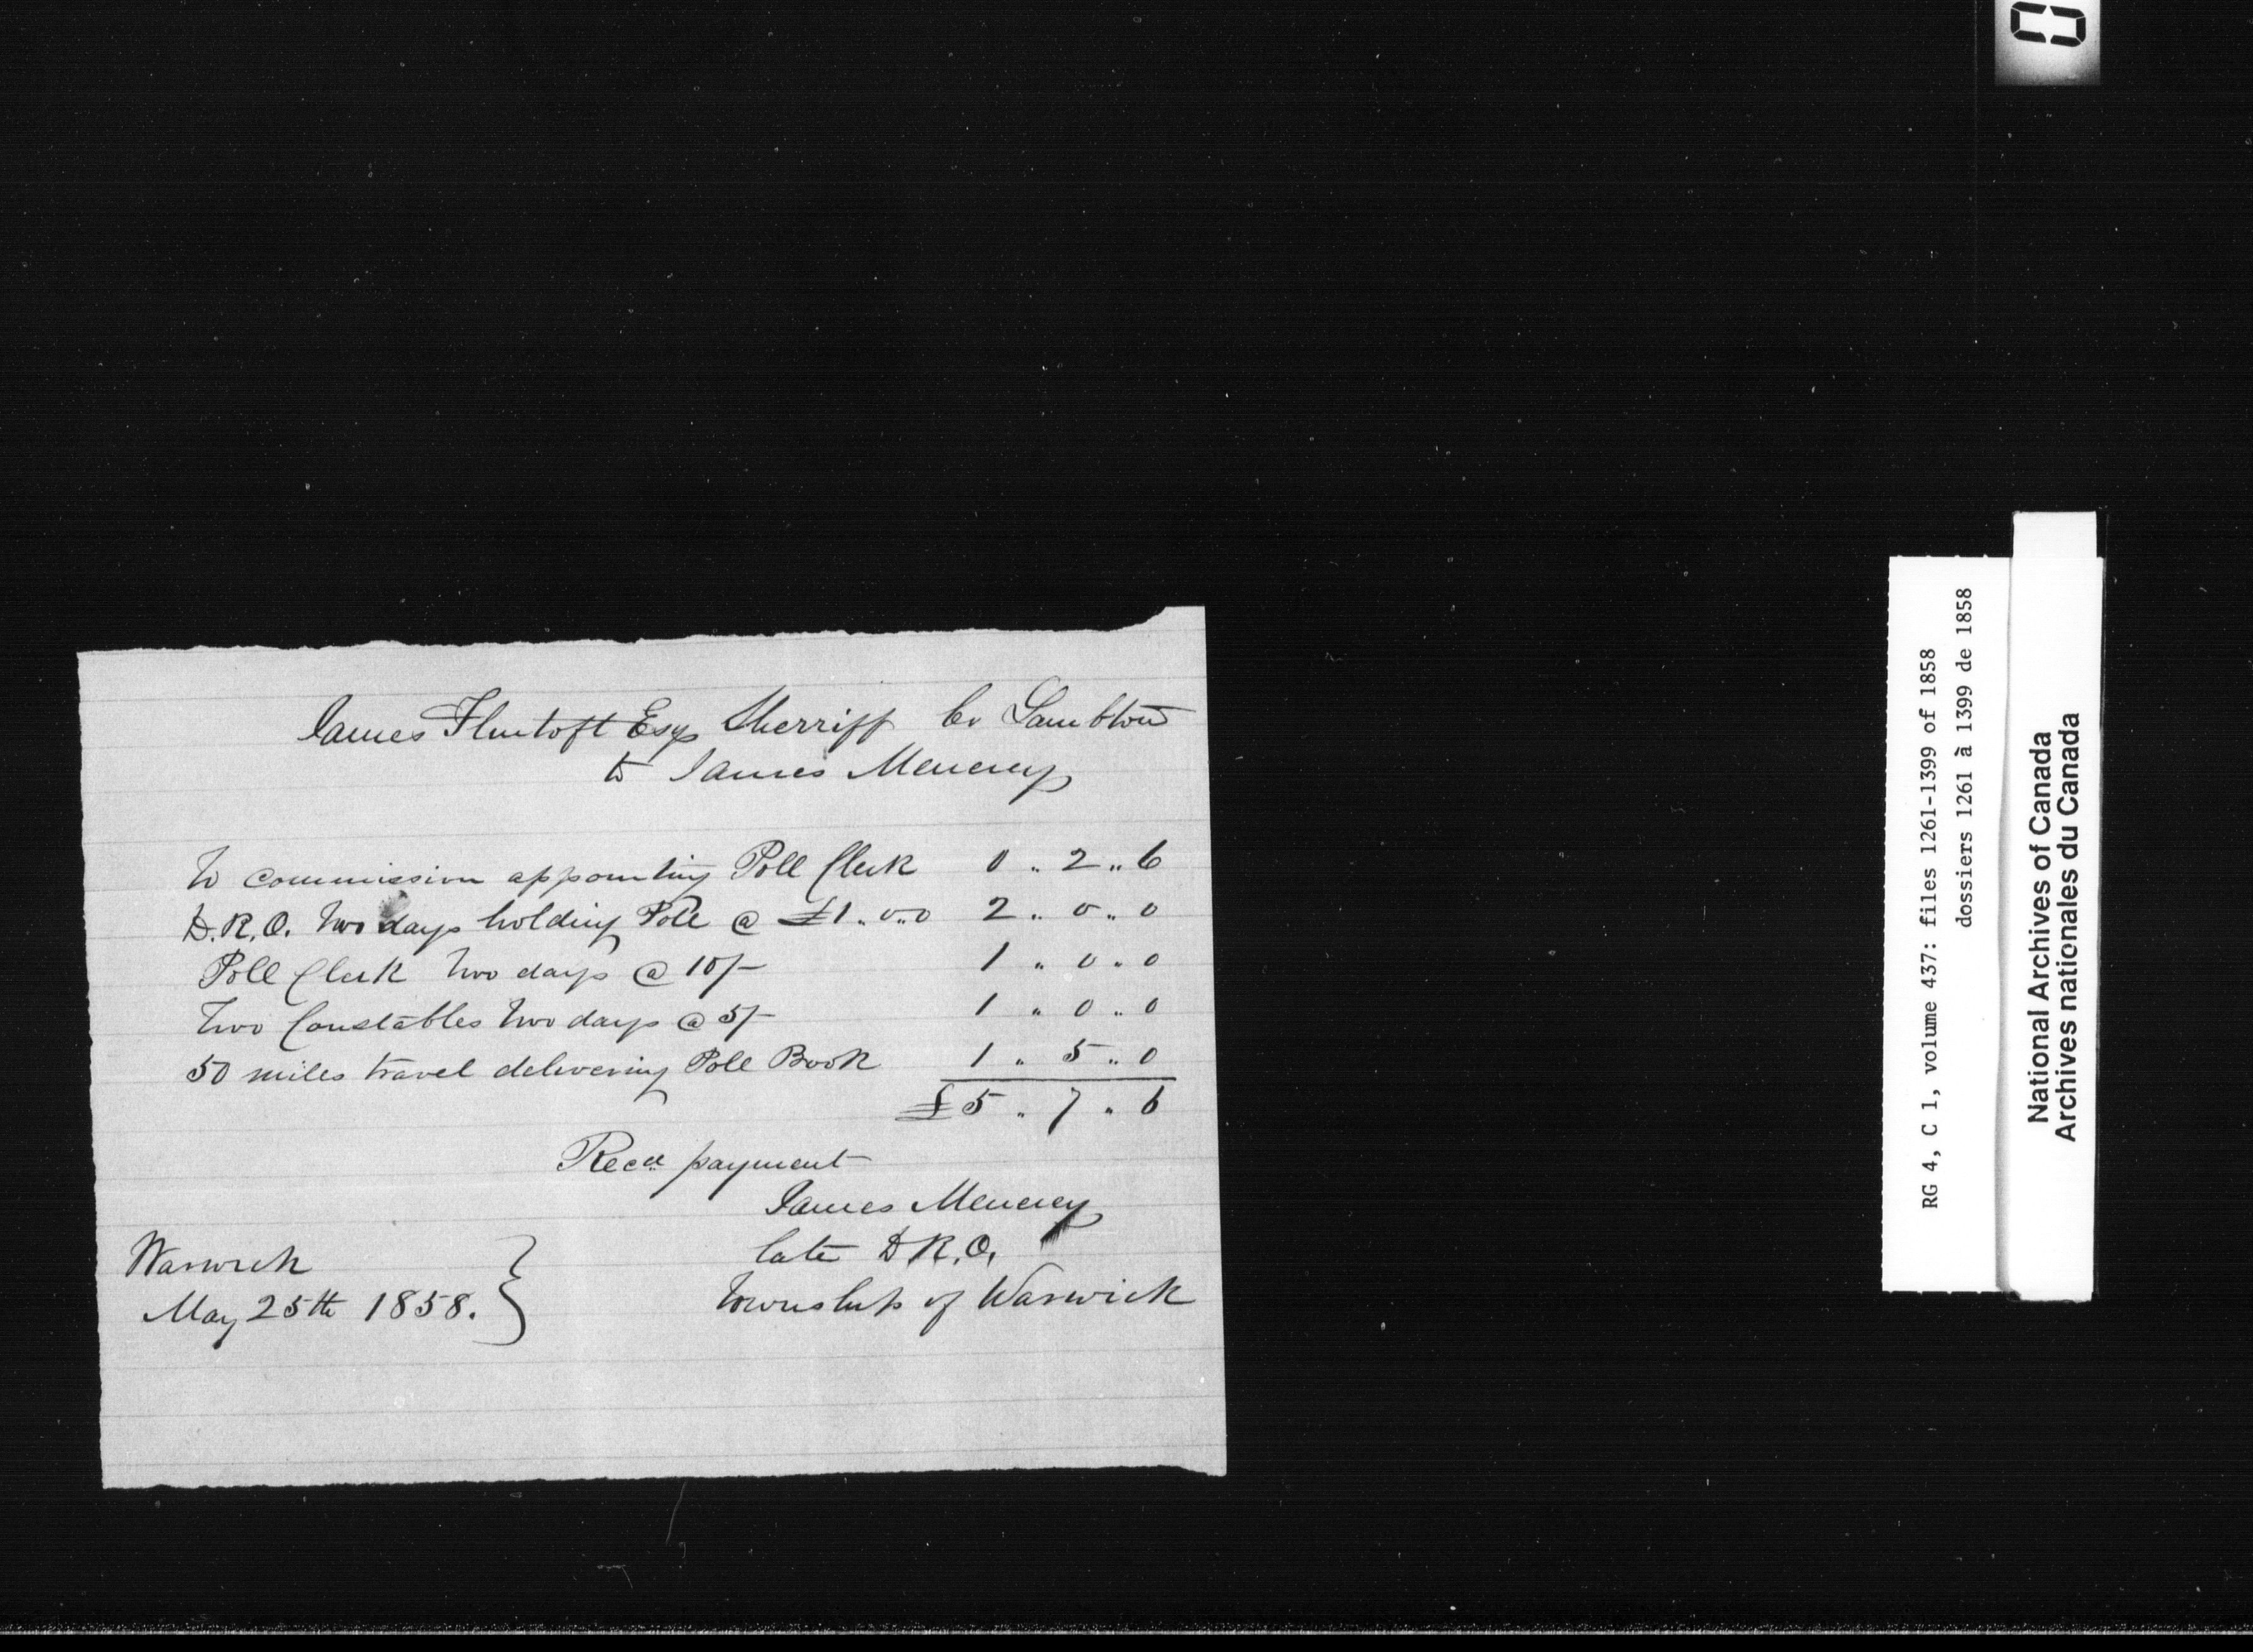 James Flintoft Esq Sherriff Co Lambton
to James Menerey
To commission appointing Poll Clerk 0 " 2 " 6
D.R.O. Two days holding Poll @ £1 " 0 " 0 2 " 0 " 0
Poll Clerk Two days @ 10/- 1 " 0 " 0
Two Constables Two days @ 5/- 1 " 0 " 0
50 miles travel delivering Poll Book 1 " 5 " 0
£5 " 7 " 6
Recd payment
James Menerey
late D.R.O.
Township of Warwick
Warwick
May 25th 1858.
RG 4, C 1, volume 437: files 1261-1399 of 1858
dossiers 1261 à 1399 de 1858
National Archives of Canada
Archives nationales du Canada